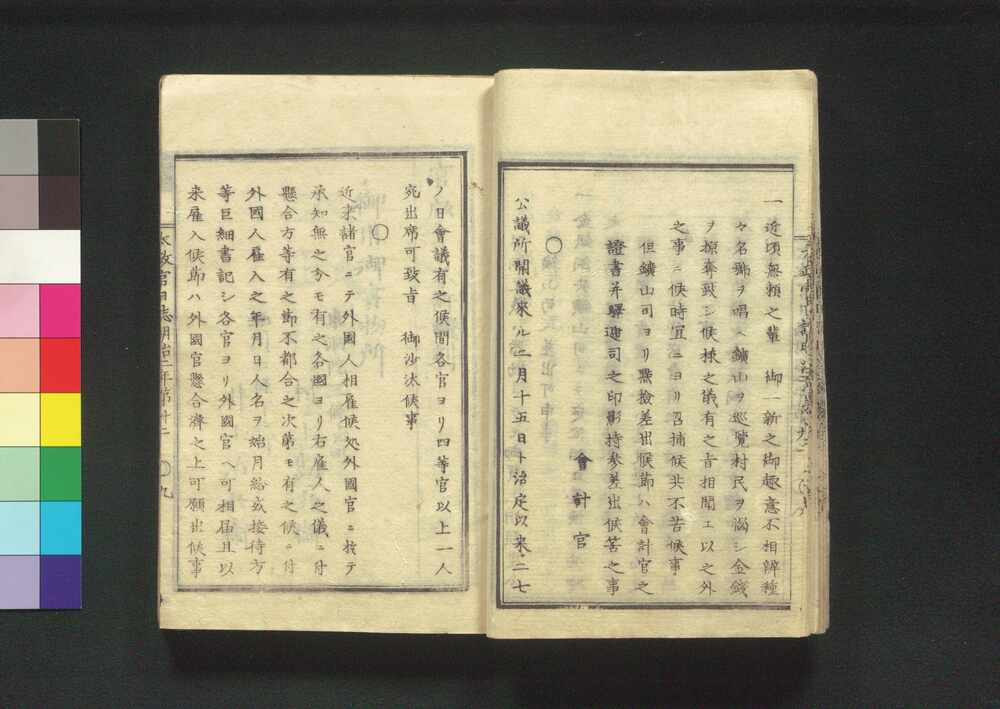 一近頃無頼之輩 御一新之御趣意不相辨種
々名號ヲ唱ヘ鑛山ヲ巡覽村民ヲ惱シ金錢
ヲ掠奪致シ候様之儀有之旨相聞エ以之外
之事ニ候時宜ニヨリ召捕候共不苦候事
但鑛山司ヨリ點撿差出候節ハ會計官之
證書并驛逓司之印影持参差出候筈之事
會計官
〇
公議所開議來ル二月十五日ト治定以来二七
ノ日會議有之候間各官ヨリ四等官以上一人
宛出席可致旨 御沙汰候事
〇
近来諸官ニテ外國人相雇候処外國官ニ於テ
承知無之分モ有之各國ヨリ右雇人之儀ニ付
懸合方等有之節不都合之次第モ有之候ニ付
外國人雇入之年月日人名ヲ始月給或接待方
等巨細書記シ各官ヨリ外國官ヘ可相届且以
来雇入候節ハ外國官懸合濟之上可願出候事
太政官日誌明治二年第十二 〇九